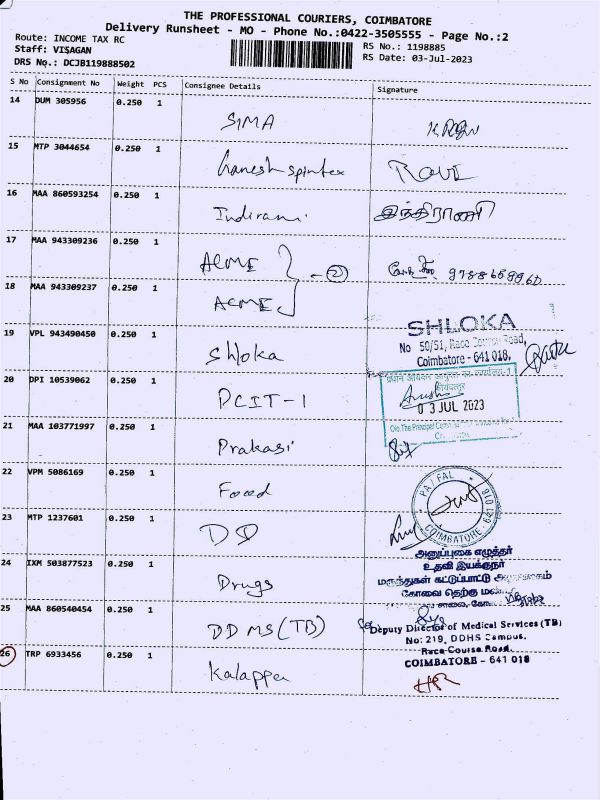 THE PROFESSIONAL COURIERS, COIMBATORE
Delivery Runsheet - MO - Phone No.:0422-3505555 - Page No.:2
Route: INCOME TAX RC
RS No.: 1198885
Staff: VISAGAN
RS Date: 03-Jul-2023
DRS No.: DCJB119888502
S No Consignment No Weight PCS Consignee Details Signature
14 DUM 305956 0.250 1 SIMA
15 MTP 3044654 0.250 1 Ganesh spintex Ravi
16 MAA 860593254 0.250 1 Indirani இந்திராணி
17 MAA 943309236 0.250 1 ACME
18 MAA 943309237 0.250 1 ACME
- (2)
19 VPL 943490450 0.250 1 Shloka
SHLOKA
No 50/51, Race Course Road,
Coimbatore - 641 018,
20 DPI 10539062 0.250 1 PCIT-1
03 JUL 2023
21 MAA 103771997 0.250 1 Prakasi
22 VPM 5086169 0.250 1 Food
23 MTP 1237601 0.250 1 DD
COIMBATORE - 641 018
24 IXM 503877523 0.250 1 Drugs
அனுப்புகை எழுத்தர்
உதவி இயக்குநர்
மருந்துகள் கட்டுப்பாட்டு
கோவை தெற்கு
25 MAA 860540454 0.250 1 DDMS (TB)
Deputy Director of Medical Services (TB)
No: 219, DDHS Campus,
Race Course Road,
COIMBATORE - 641 018
26 TRP 6933456 0.250 1 Kalappa